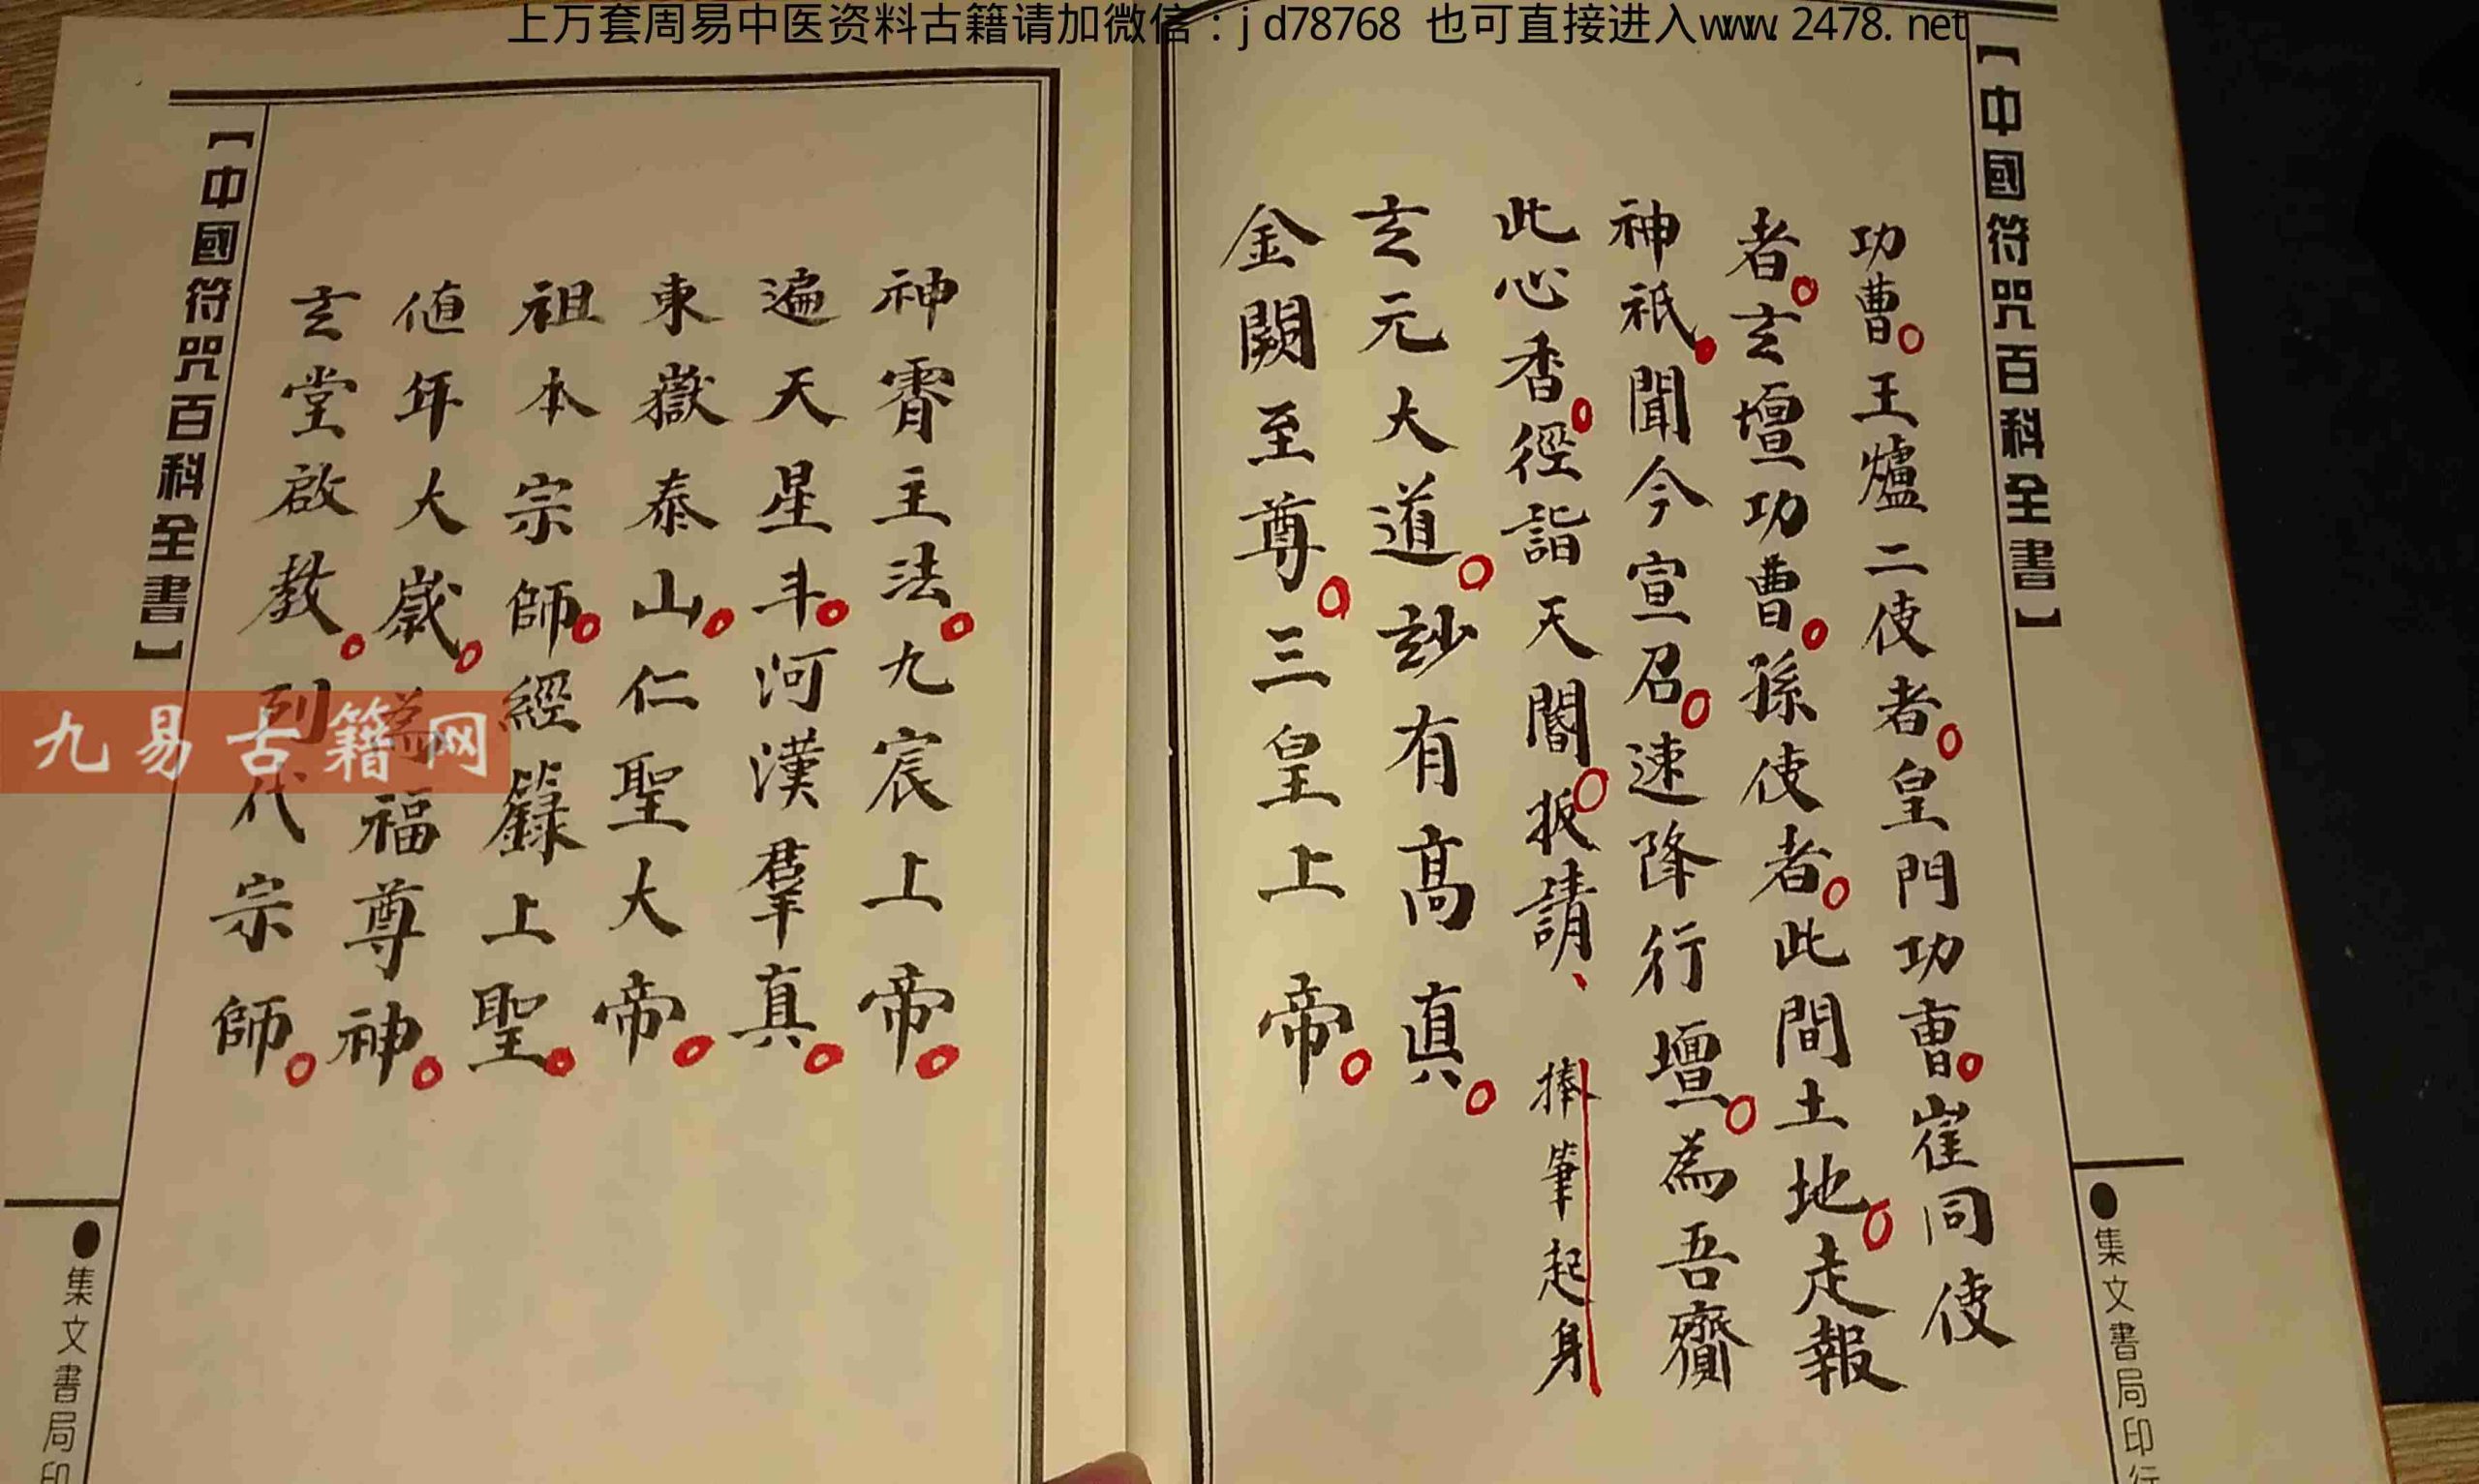 上万套周易中医资料古籍请加微信：jd78768 也可直接进入www.2478.net
【中國符咒百科全書】
●集文書局印行
功曹。王爐二使者。皇門功曹。崔同使
者。玄壇功曹。孫使者。此間土地。走報
神祇。聞今宣召。速降行壇。為吾齎
此心香。徑詣天閽。扳請、捧筆起身
玄元大道。玅有高真。
金闕至尊。三皇上帝。
神霄主法。九宸上帝。
遍天星斗。河漢羣真。
東嶽泰山。仁聖大帝。
祖本宗師。經籙上聖。
值年大歲。為福尊神。
玄堂啟教。列代宗師。
【中國符咒百科全書】
●集文書局印
九易古籍网